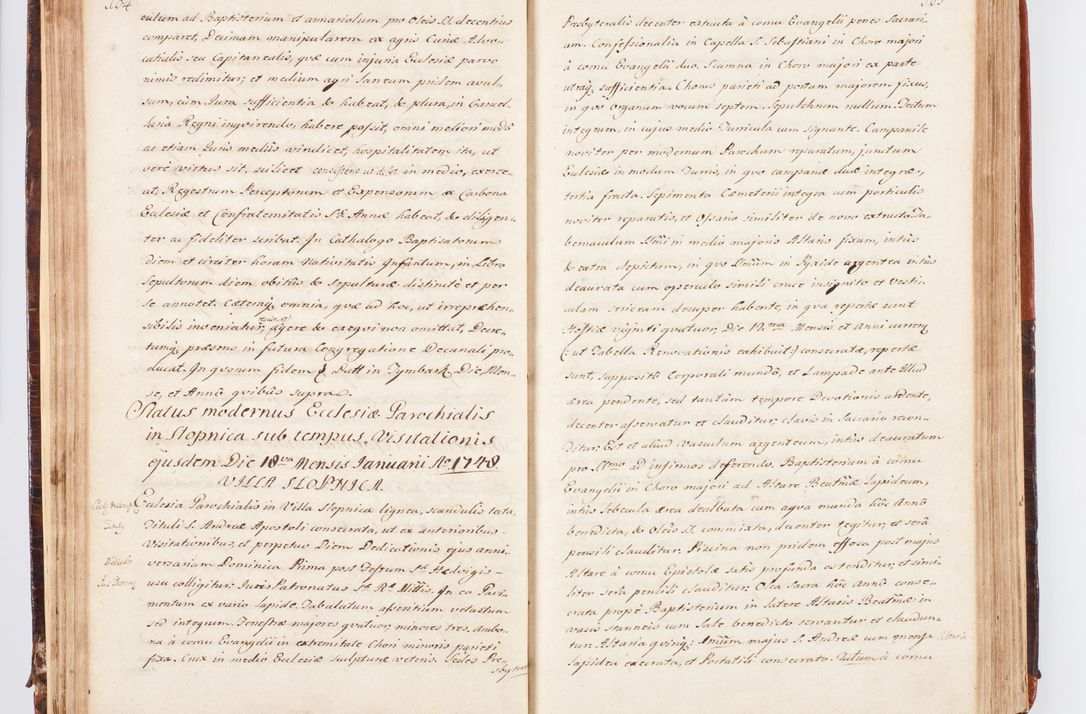 culum ad Baptisterium et armariolum pro Oleis S. decentius
comparet, Decimam manipularem ex agris Curiæ Advo-
catialis seu Capitanealis, quæ cum injuria Ecclesiæ parvo
nimis redimitur, et medium agri laneum pridem avul-
sum, cùm Jura sufficientia & habeat, & plura, in Cancel-
laria Regni inquirendo, habere possit, omni meliori modo
ac etiam Juris mediis vindicet, hospitalitatem ita, ut
vere virtus sit, scilicet consistens in medio, exerce-
at, Regestrum Perceptorum et Expensorum ex Carbona
Ecclesiæ et Confraternitatis S. Annæ habeat, & diligen-
ter ac fideliter scribat. In Cathalogo Baptisatorum
diem et circiter horam Nativitatis Infantum, in Libro
sepultorum diem obitus & sepulturæ distincte et per
se annotet. Cæteraq; omnia, quæ ad hoc, ut irrepræhen-
sibilis inveniatur, agere & exequi non omittat, Decre-
tumq; præsens in futura Congregatione Decanali pro-
ducat. In quorum fidem Datt in Tymbark Die, Men-
se, et Anno quibus supra.
Status modernus Ecclesiæ Parochialis
in Slopnica sub tempus Visitationis
ejusdem Die 18va Mensis Januarii Ao 1748
VILLA SLOPNICA.
Ecclesia Parochialis in Villa Slopnica lignea, scandulis tecta,
Tituli S. Andreæ Apostoli consecrata, ut ex anterioribus
Visitationibus, et perpetuo Diem Dedicationis ejus anni-
versariam Dominica Prima post Festum S. Hedvigis
usu colligitur. Juris Patronatus S. R. Mttis. In ea Pavi-
mentum ex vario lapide. Tabulatum asseritium vetustum
sed integrum. Fenestræ majores quatuor, minores tres. Ambo-
na à cornu Evangelii in extremitate Chori minoris parieti
fixa. Crux in medio Ecclesiæ sculpturæ veteris. Sedes Pre-
sbyte
Presbyteralis decenter extructa à cornu Evangelii penes Sacrari-
um. Confessionalia in Capella S. Sebastiani in Choro majori
à cornu Evangelii duo. Scamna in Choro majori ex parte
utraq; sufficientia. Chorus parieti ad portam majorem fixus,
in quo organum vocum septem. Sepulchrum nullum. Tectum
integrum, in cujus medio Turricula cum signante. Campanile
noviter per modernum Parochum reparatum, junctum
Ecclesiæ in modum Turris, in quo campanæ duæ integræ,
tertia fracta. Sepimenta Cæmeterii integra cum porticulis
noviter reparatis, et Ossario similiter de novo extructo. Ta-
bernaculum SSmi in medio majoris Altaris fixum, intùs
& extra depictum, in quo SSmum in Pyxide argentea intùs
deaurata cum operculo simili cruce insignito et vesti-
culam sericeam desuper habente, in qua repertæ sunt
Hostiæ viginti quatuor, Die 12ma Mensis et Anni curren;
(: ut Tabella Renovationis exhibuit:) consecratæ, repertæ
sunt, supposito Corporali mundo, et Lampade ante Illud
ærea pendente, sed tantùm tempore Devotionis ardente,
decenter asservatur et clauditur, clavis in Sacrario recon-
ditur. Est et aliud vasculum argenteum, intùs deauratum
pro SSmo ad infirmos deferendo. Baptisterium à cornu
Evangelii in Choro majori ad Altare Beatmæ lapideum,
intùs Sebcula ærea dealbata cum aqua munda hôc Anno
benedicta, & Oleis S. commixta, decenter tegitur, et serâ
pensili clauditur. Piscina non pridem effossa post majus
Altare à cornu Epistolæ satis profunda extenditur, et simi-
liter serâ pensili clauditur. Olea Sacra hôc Anno conse-
crata propè Baptisterium in latere Altaris Beatmæ in
vasis stanneis cum Sale benedicto servantur et claudun-
tur. Altaria quinq; Imum majus S. Andreæ cum mensa
lapidea execrata, et Portatili consecrato. 2dum à cornu